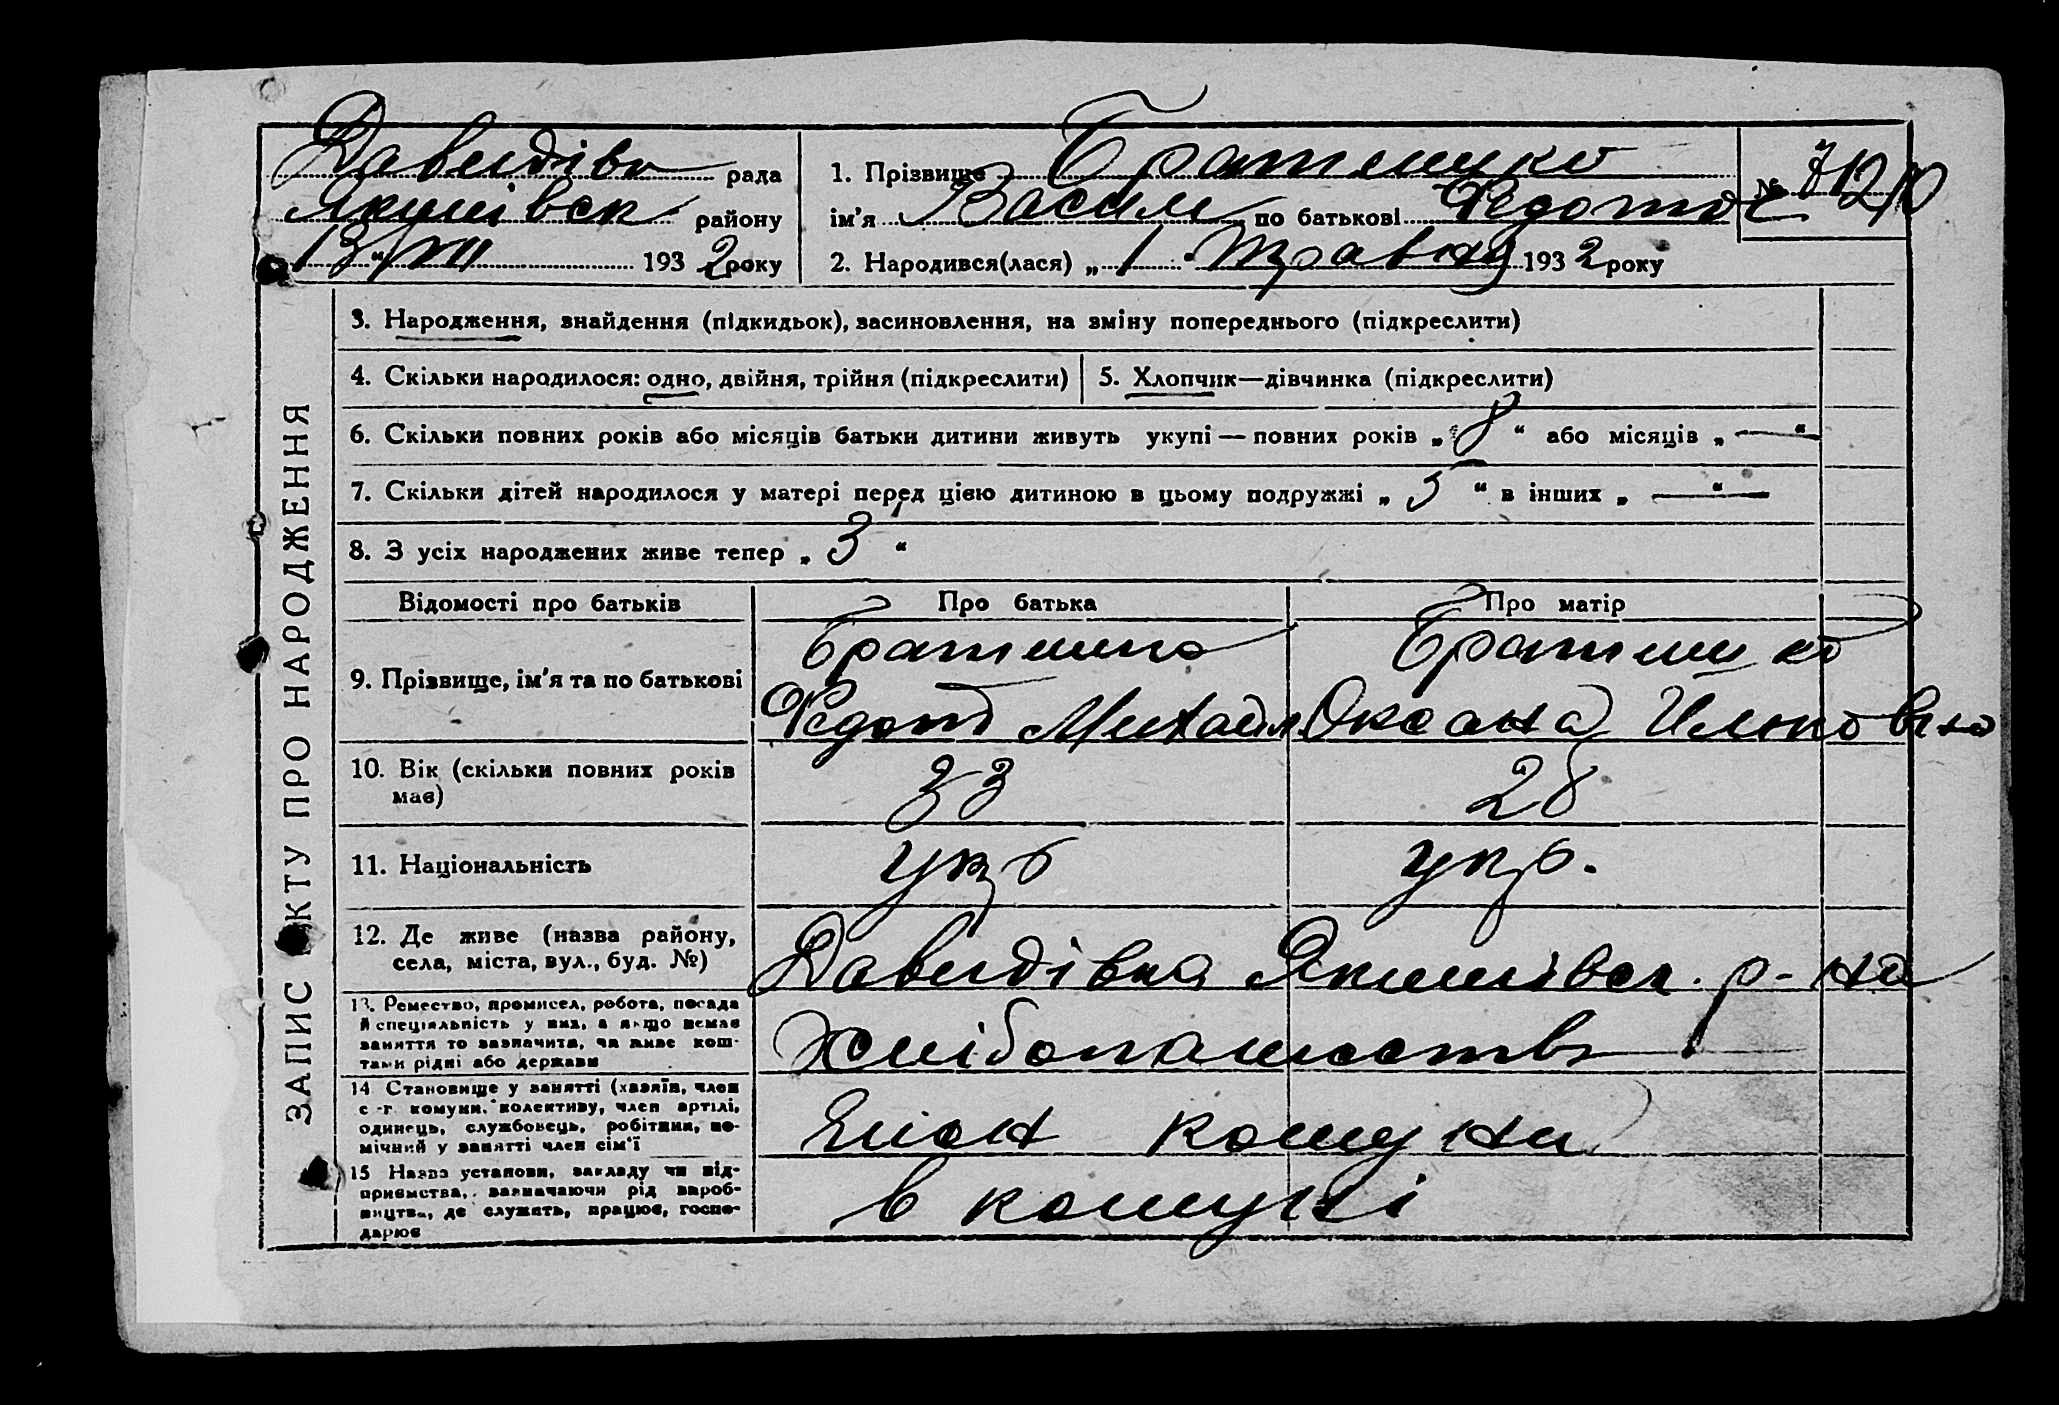 Давидівк рада
Якимівск району
"13" VII 1932 року
1. Прізвище Братишко
ім'я Васил по батькові Федотов
2. Народився(лася) „1" Травня 1932 року
№
ЗАПИС АКТУ ПРО НАРОДЖЕННЯ
3. Народження, знайдення (підкидьок), засиновлення, на зміну попереднього (підкреслити)
4. Скільки народилося: одно, двійня, трійня (підкреслити)
5. Хлопчик—дівчинка (підкреслити)
6. Скільки повних років або місяців батьки дитини живуть укупі — повних років „8" або місяців „—"
7. Скільки дітей народилося у матері перед цією дитиною в цьому подружжі „5" в інших „—"
8. З усіх народжених живе тепер „3"
Відомості про батьків Про батька Про матір
9. Прізвище, ім'я та по батькові
Братишко Братишко
Федот Михайл Оксана Ильковна
10. Вік (скільки повних років
має)
33 28
11. Національність укр укр.
12. Де живе (назва району,
села, міста, вул., буд. №)
Давидівка Якимівск. р-на
13. Ремество, промисел, робота, посада
й спеціяльність у них, а якщо немає
заняття то зазначити, чи живе кош-
тами рідні або держави
Хлібопашество
14 Становище у занятті (хазяїн, член
с.-г. комуни, колективу, член артілі,
одинець, службовець, робітник, по-
мічний у занятті член сім'ї
Член комуни
15 Назва установи, закладу чи під-
приємства, зазначаючи рід вироб-
ництва, де служать, працює, госпо-
дарює
в комуні